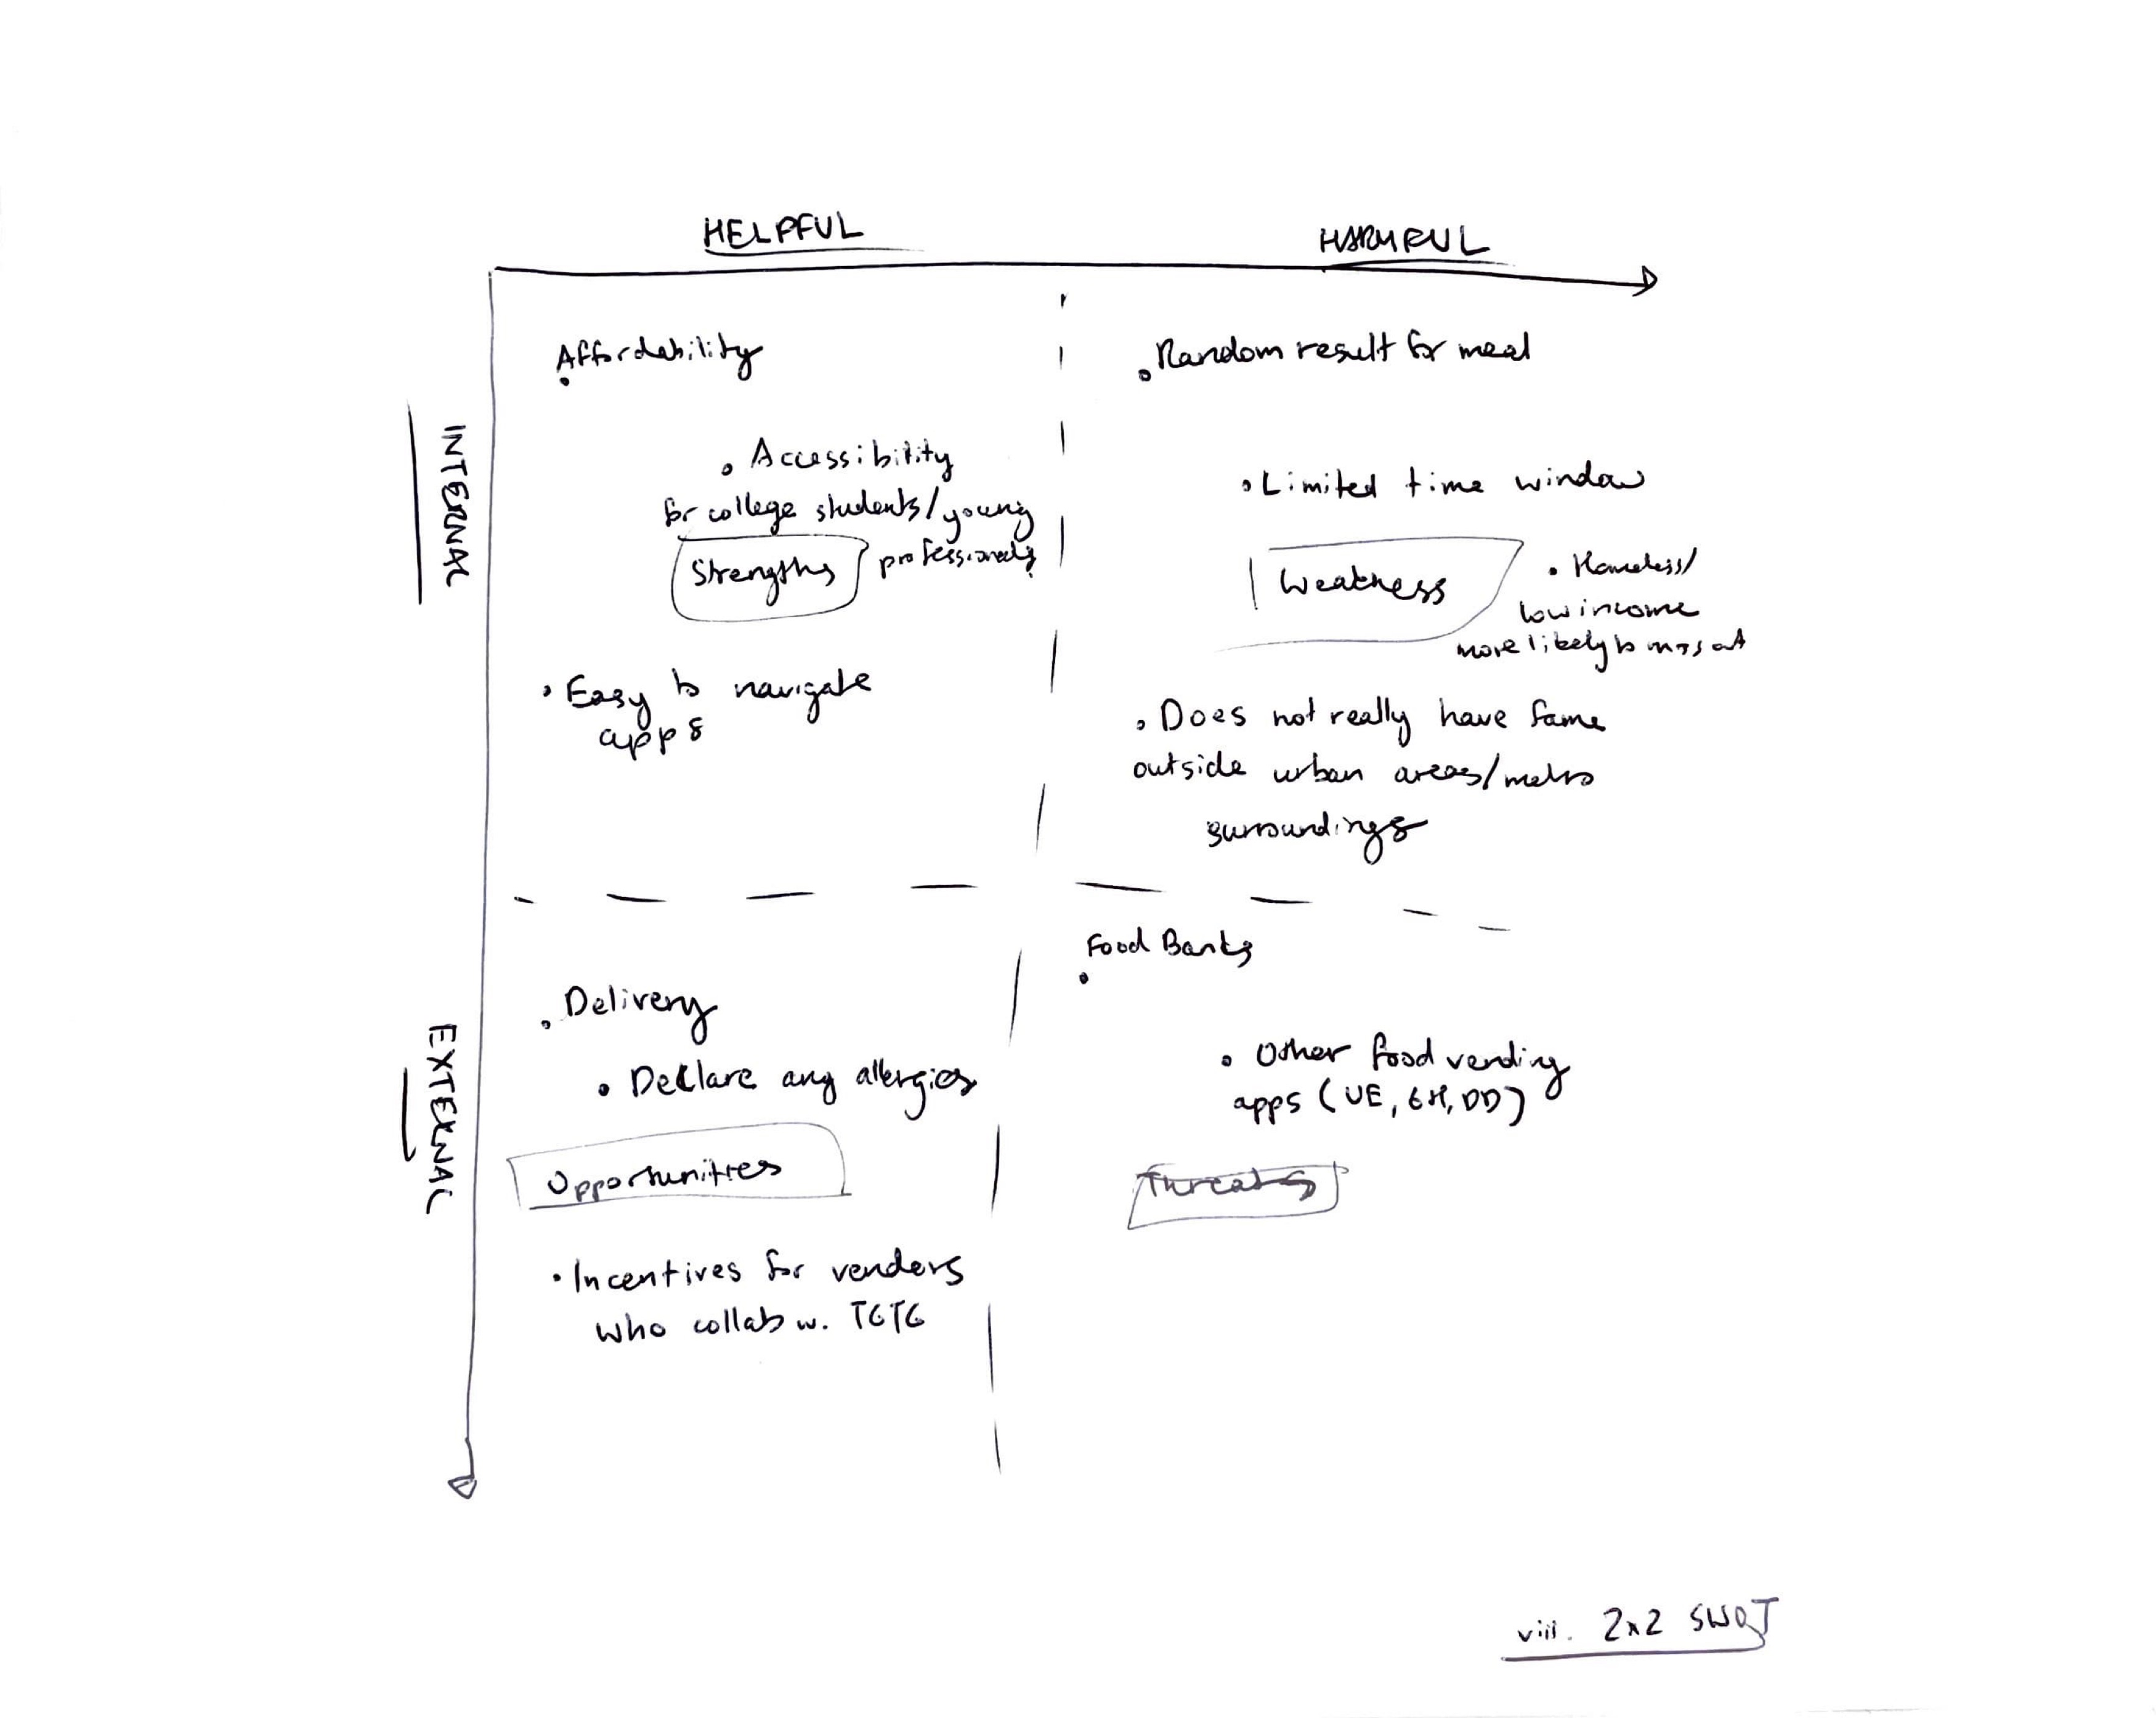 HELPFUL
HARMFUL
INTERNAL
Affordability
• Accessibility
for college students/young
professionals
Strengths
• Easy to navigate
apps
• Random result for meal
• Limited time window
Weakness
• Homeless/
low income
more likely to miss out
• Does not really have fame
outside urban areas/metro
surroundings
EXTERNAL
• Delivery
• Declare any allergies
Opportunities
• Incentives for venders
who collab w. TGTG
Food Banks
• Other food vending
apps (UE, GH, DD)
Threats
viii. 2x2 SWOT